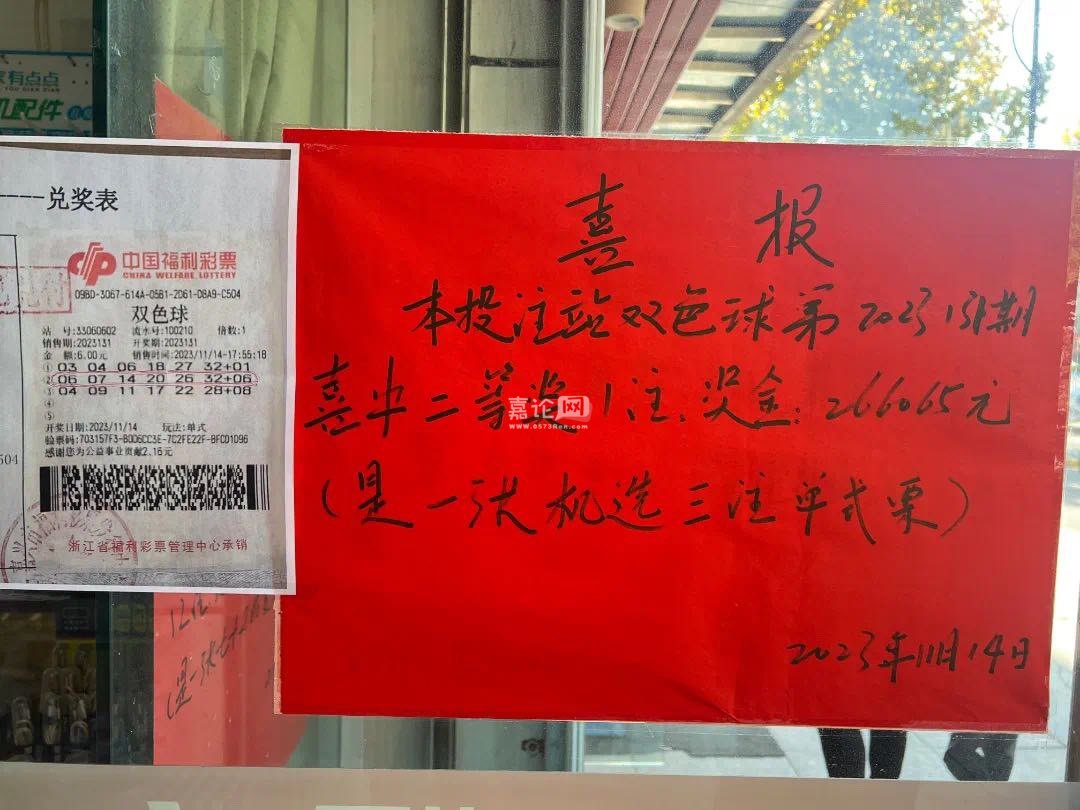 家有点点
YOU DIAN DIAN
机配件
兑奖表
中国福利彩票
CHINA WELFARE LOTTERY
09BD-3067-614A-05B1-2D61-D8A9-C504
双色球
站 号:33060602 流水号:100210 倍数:1
销售期:2023131 开奖期:2023131
金 额:6.00元 销售时间:2023/11/14-17:55:18
① 03 04 06 18 27 32+01
② 06 07 14 20 26 32+06
③ 04 09 11 17 22 28+08
④
⑤
开奖日期:2023/11/14 玩法:单式
验票码:703157F3-B0D6CC3E-7C2FE22F-BFC01096
感谢您为公益事业贡献2.16元
504
浙江省福利彩票管理中心承销
喜报
本投注站双色球第2023131期
喜中二等奖1注,奖金:266065元
(是一张机选三注单式票)
2023年11月14日
嘉论网
www.0573Ren.com
12注
(是一张